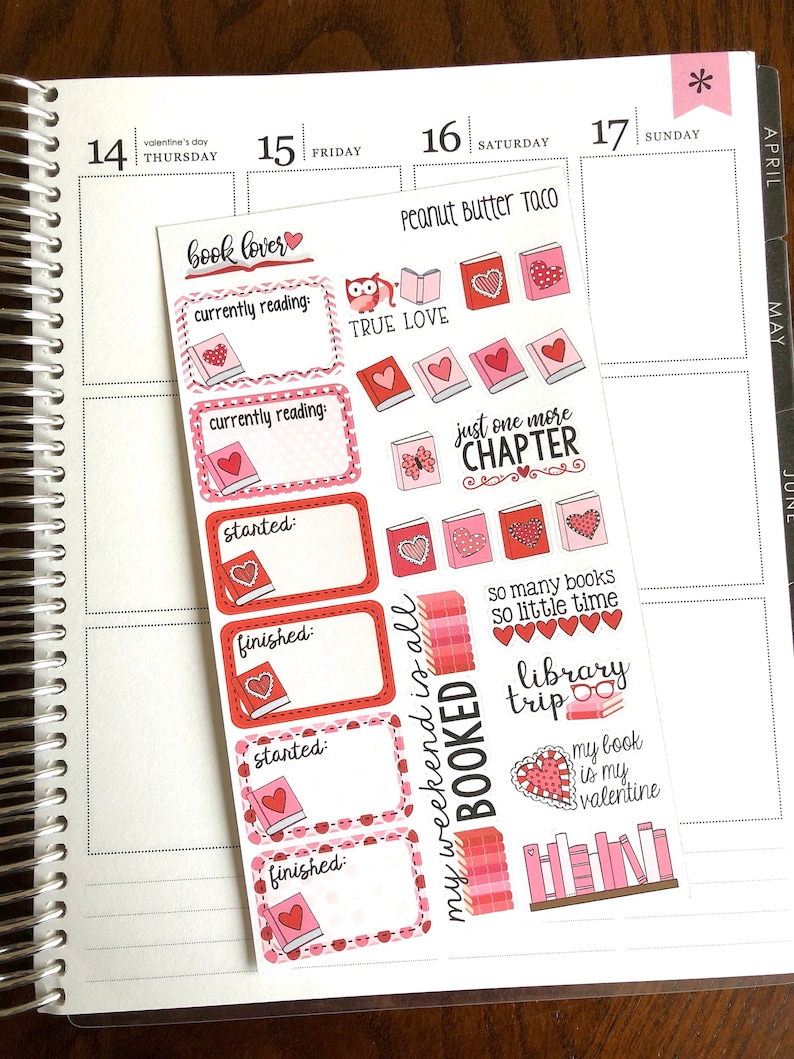 *
14 valentine's day
THURSDAY
15 FRIDAY
16 SATURDAY
17 SUNDAY
APRIL
MAY
JUNE
Peanut Butter Taco
book lover
currently reading:
TRUE LOVE
currently reading:
just one more
CHAPTER
started:
so many books
so little time
finished:
my weekend is all
BOOKED
library
trip
started:
my book
is my
valentine
finished: